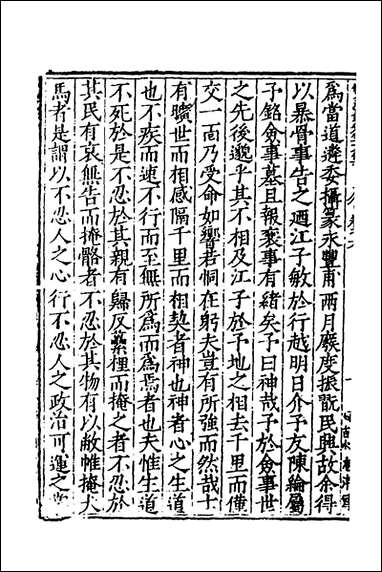 爲當道遴委攝篆永豐甫兩月厥度振翫民興故余得
以暴骨事告之廼江子敏於行越明日介予友陳綸屬
予銘僉事墓且報襃事有緒矣予曰神哉予於僉事世
之先後邈乎其不相及江子於予地之相去千里而僅
交一咼乃受命如響若恫在躬夫豈有所強而然哉士
有曠世而相感隔千里而相契者神也神者心之生道
也不疾而速不行而至無所爲而爲焉者也夫惟生道
不死於是不忍於其親有歸反虆梩而掩之者不忍於
其民有哀無告而掩骼者不忍於其物有以敝帷掩犬
馬者是謂以不忍人之心行不忍人之政治可運之掌